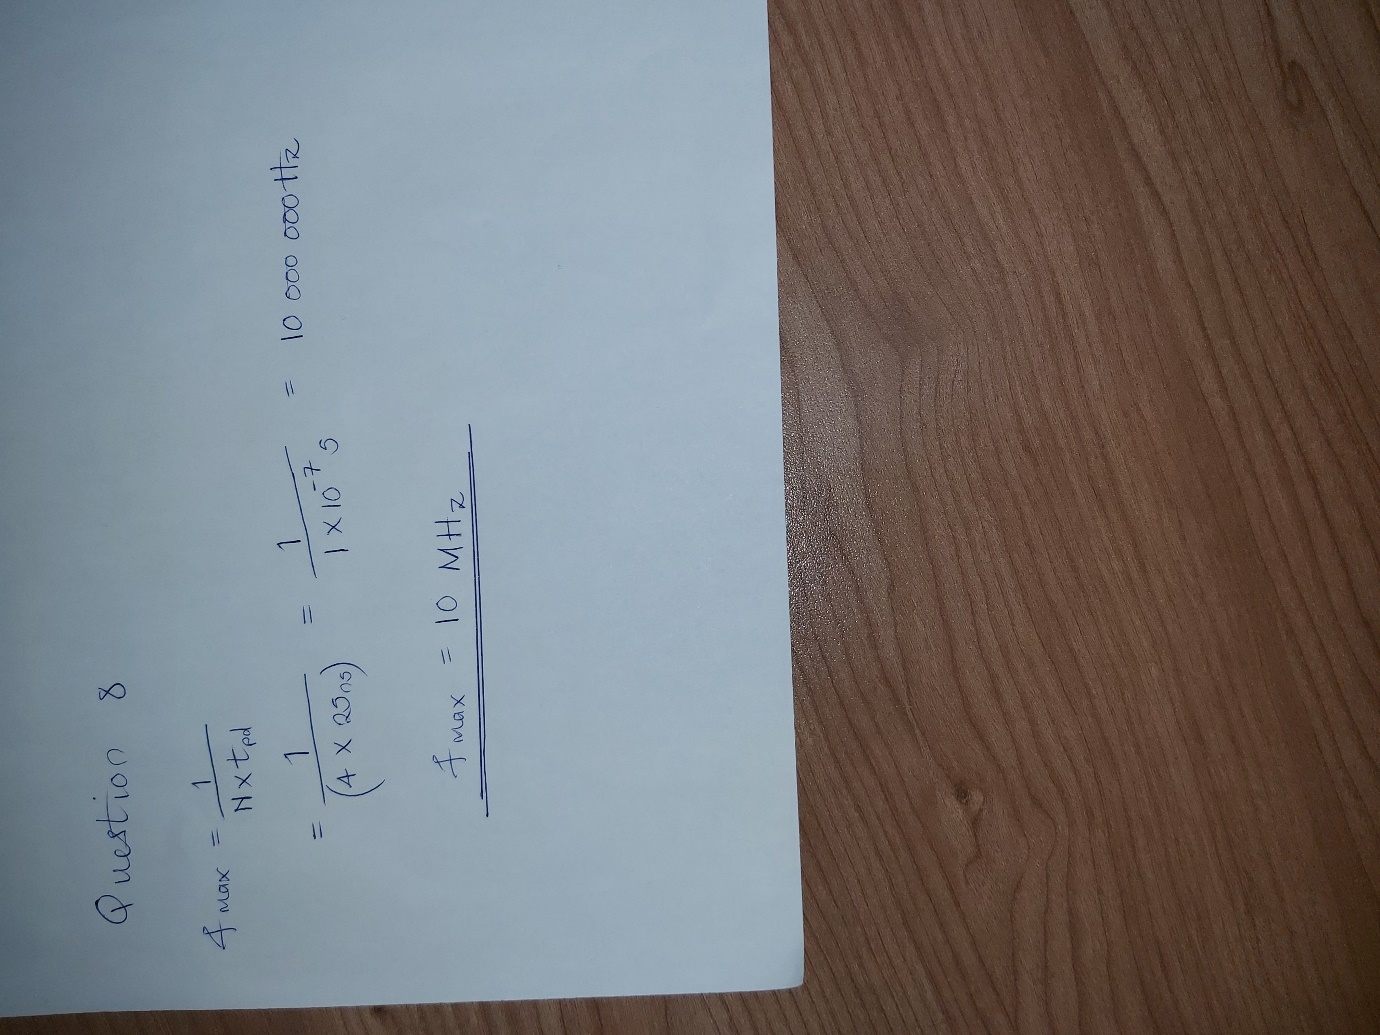 Question 8
fmax = 1/(N x tpd)
= 1/(4 x 25ns) = 1/(1 x 10⁻⁷ s) = 10 000 000 Hz
fmax = 10 MHz